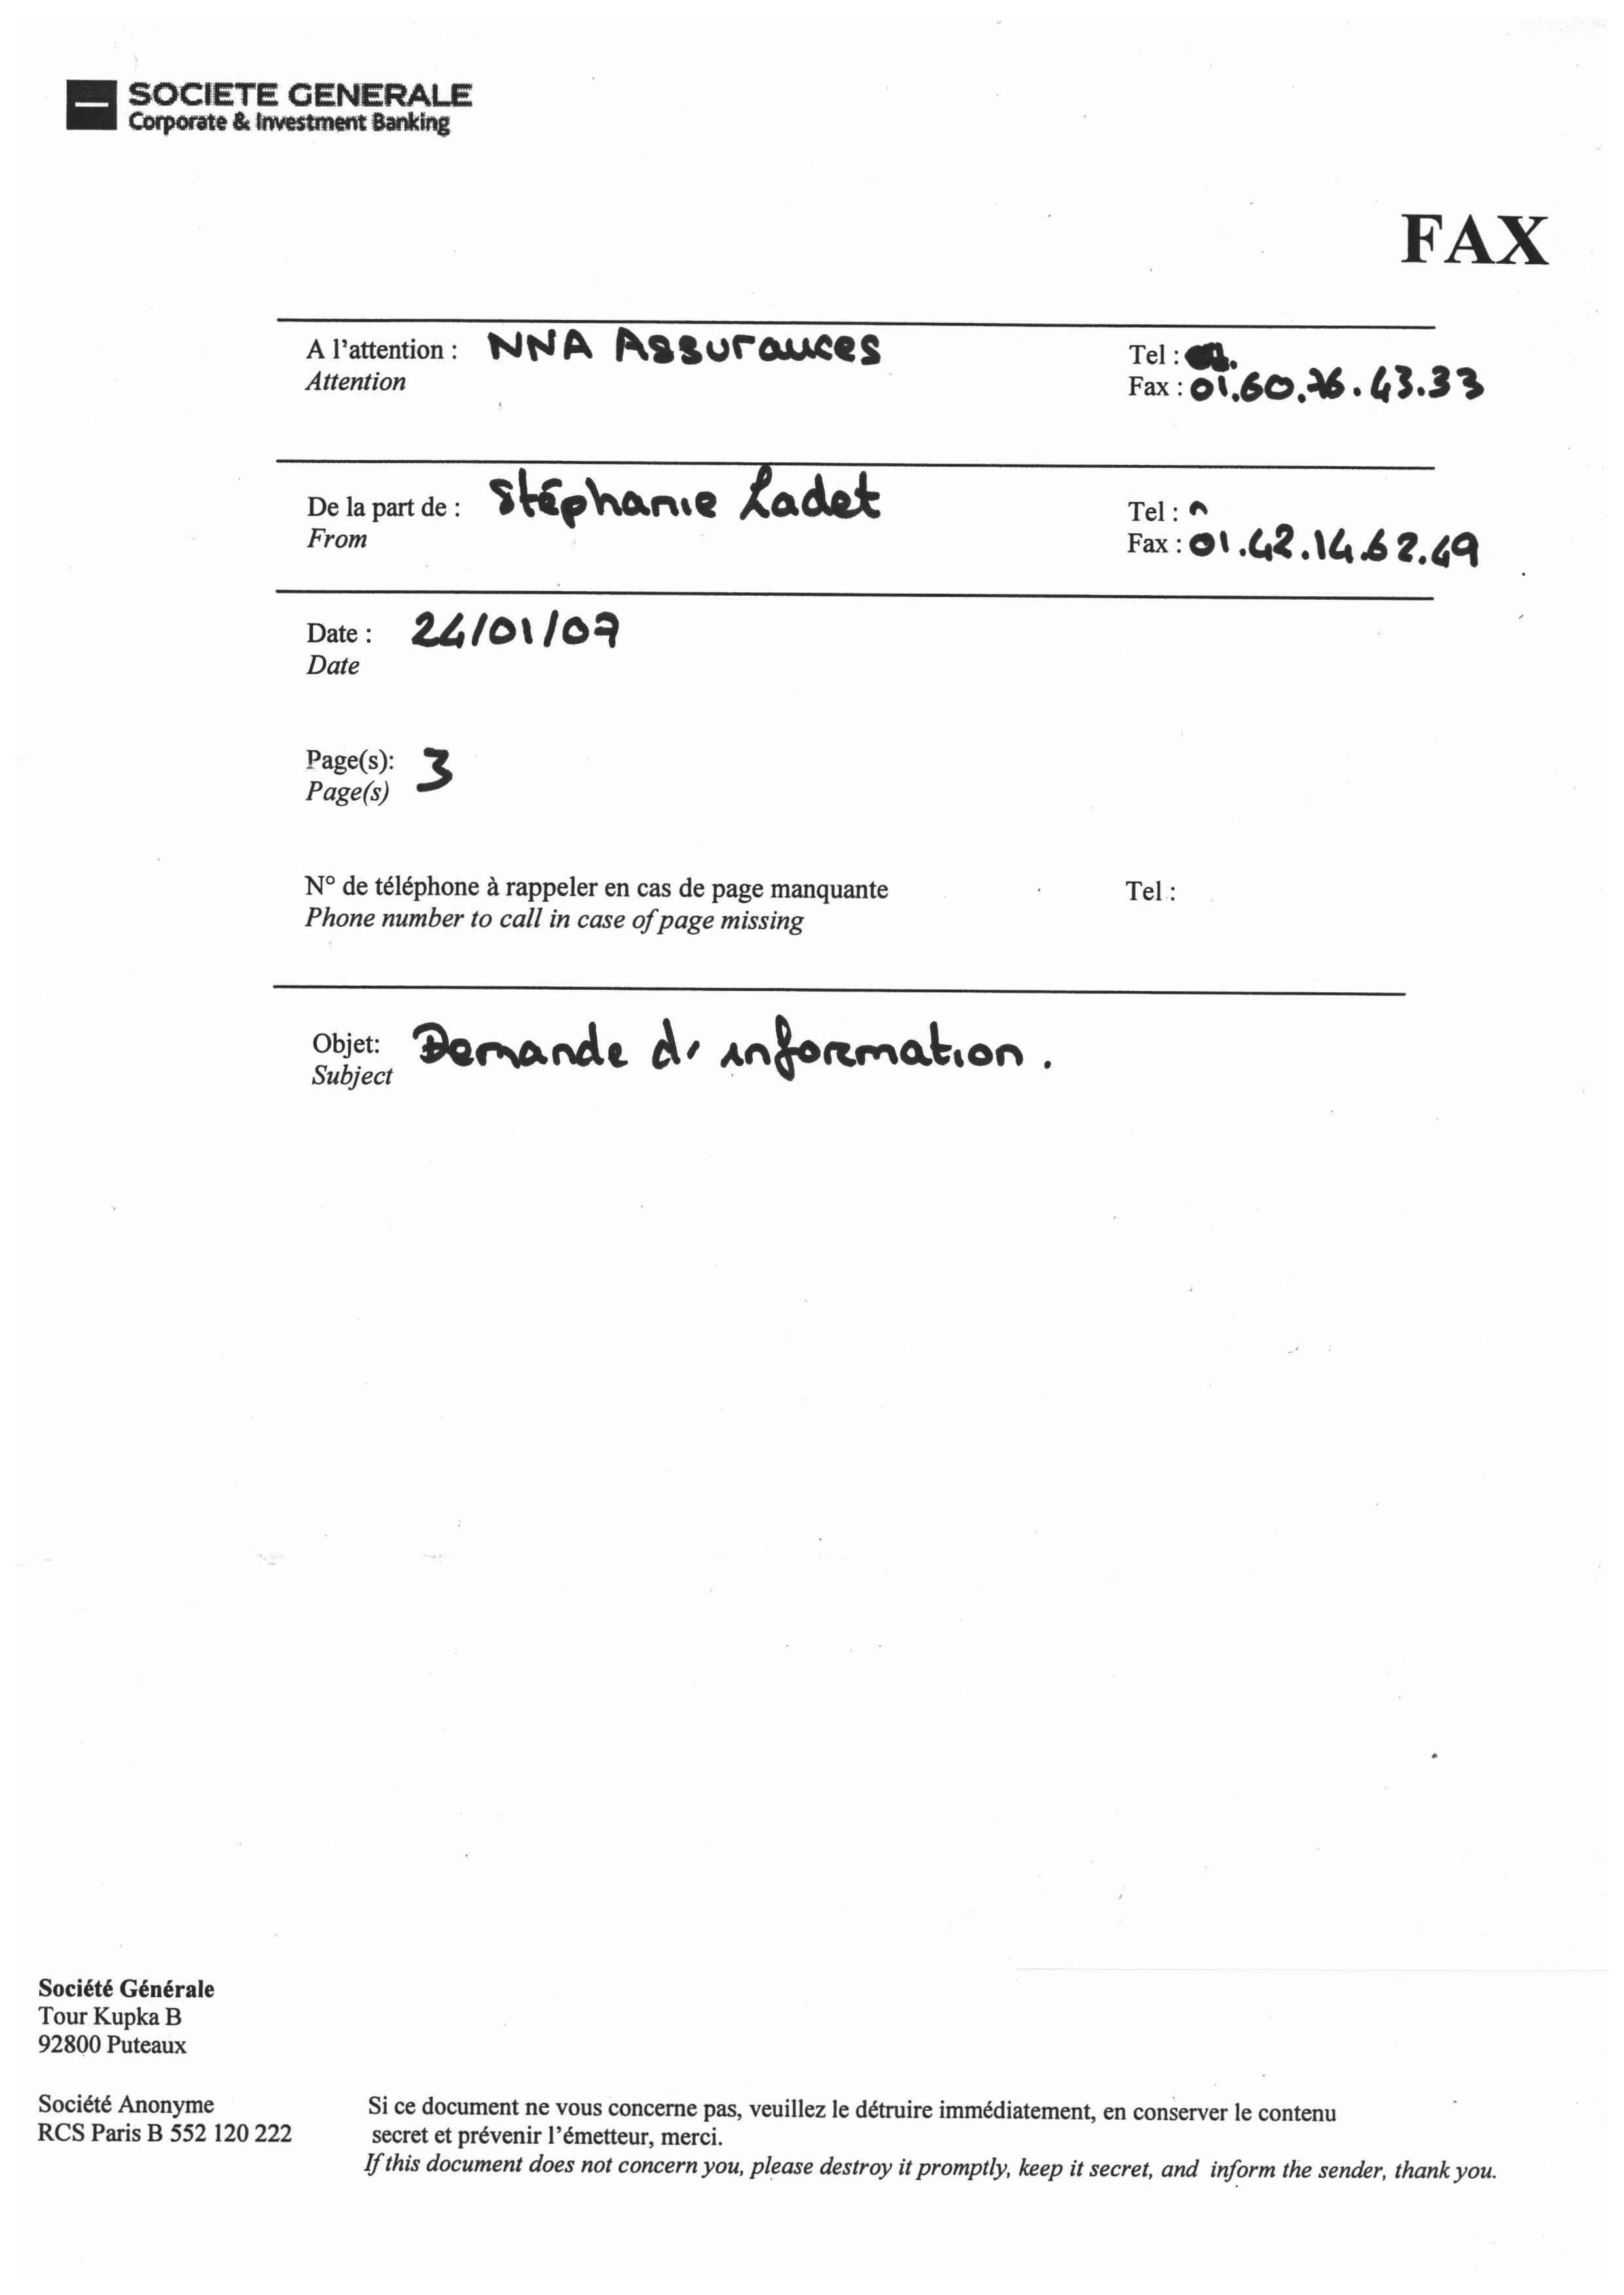 SOCIETE GENERALE
Corporate & Investment Banking
FAX
A l'attention : NNA Assurances
Attention
Tel :
Fax : 01.60.76.43.33
De la part de : Stéphanie Ladet
From
Tel :
Fax : 01.42.14.62.49
Date : 24/01/07
Date
Page(s): 3
Page(s)
N° de téléphone à rappeler en cas de page manquante
Phone number to call in case of page missing
Tel :
Objet: Demande d' information .
Subject
Société Générale
Tour Kupka B
92800 Puteaux
Société Anonyme
RCS Paris B 552 120 222
Si ce document ne vous concerne pas, veuillez le détruire immédiatement, en conserver le contenu
secret et prévenir l'émetteur, merci.
If this document does not concern you, please destroy it promptly, keep it secret, and inform the sender, thank you.